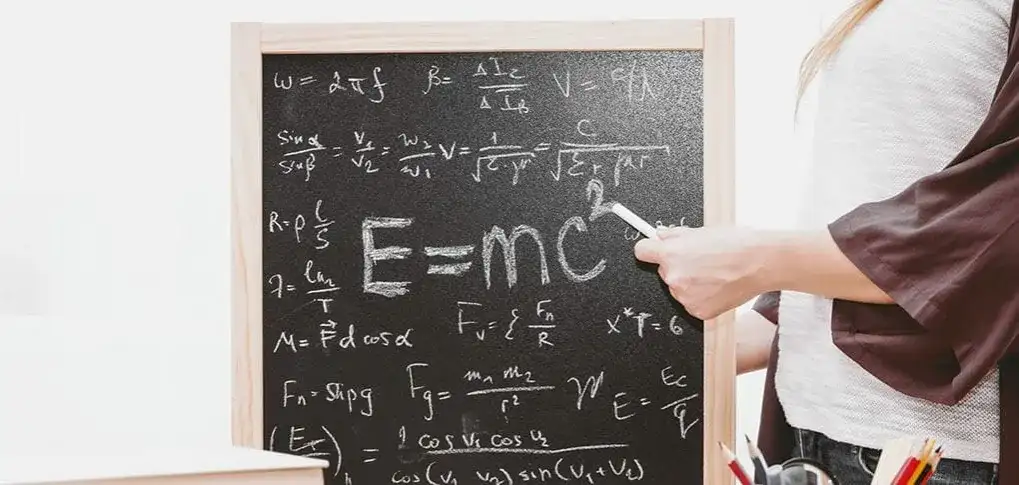 ω = 2πf β = ΔI₂/ΔI_B V =
sinα/sinβ = v₁/v₂ = w₂/w₁ V = 1/√(ε·μ) = c/√(εr μr)
R = ρ l/S
E = mc²
λ = ln₂/T
F_v = ξ F_n/R x*T = 6
M = F⃗ d cosα
F_n = Shρg F_g = m₁ m₂/r² E = E_c/q
= 2 cos v₁ cos v₂/cos(v₁ v₂) sin(v₁+v₂)